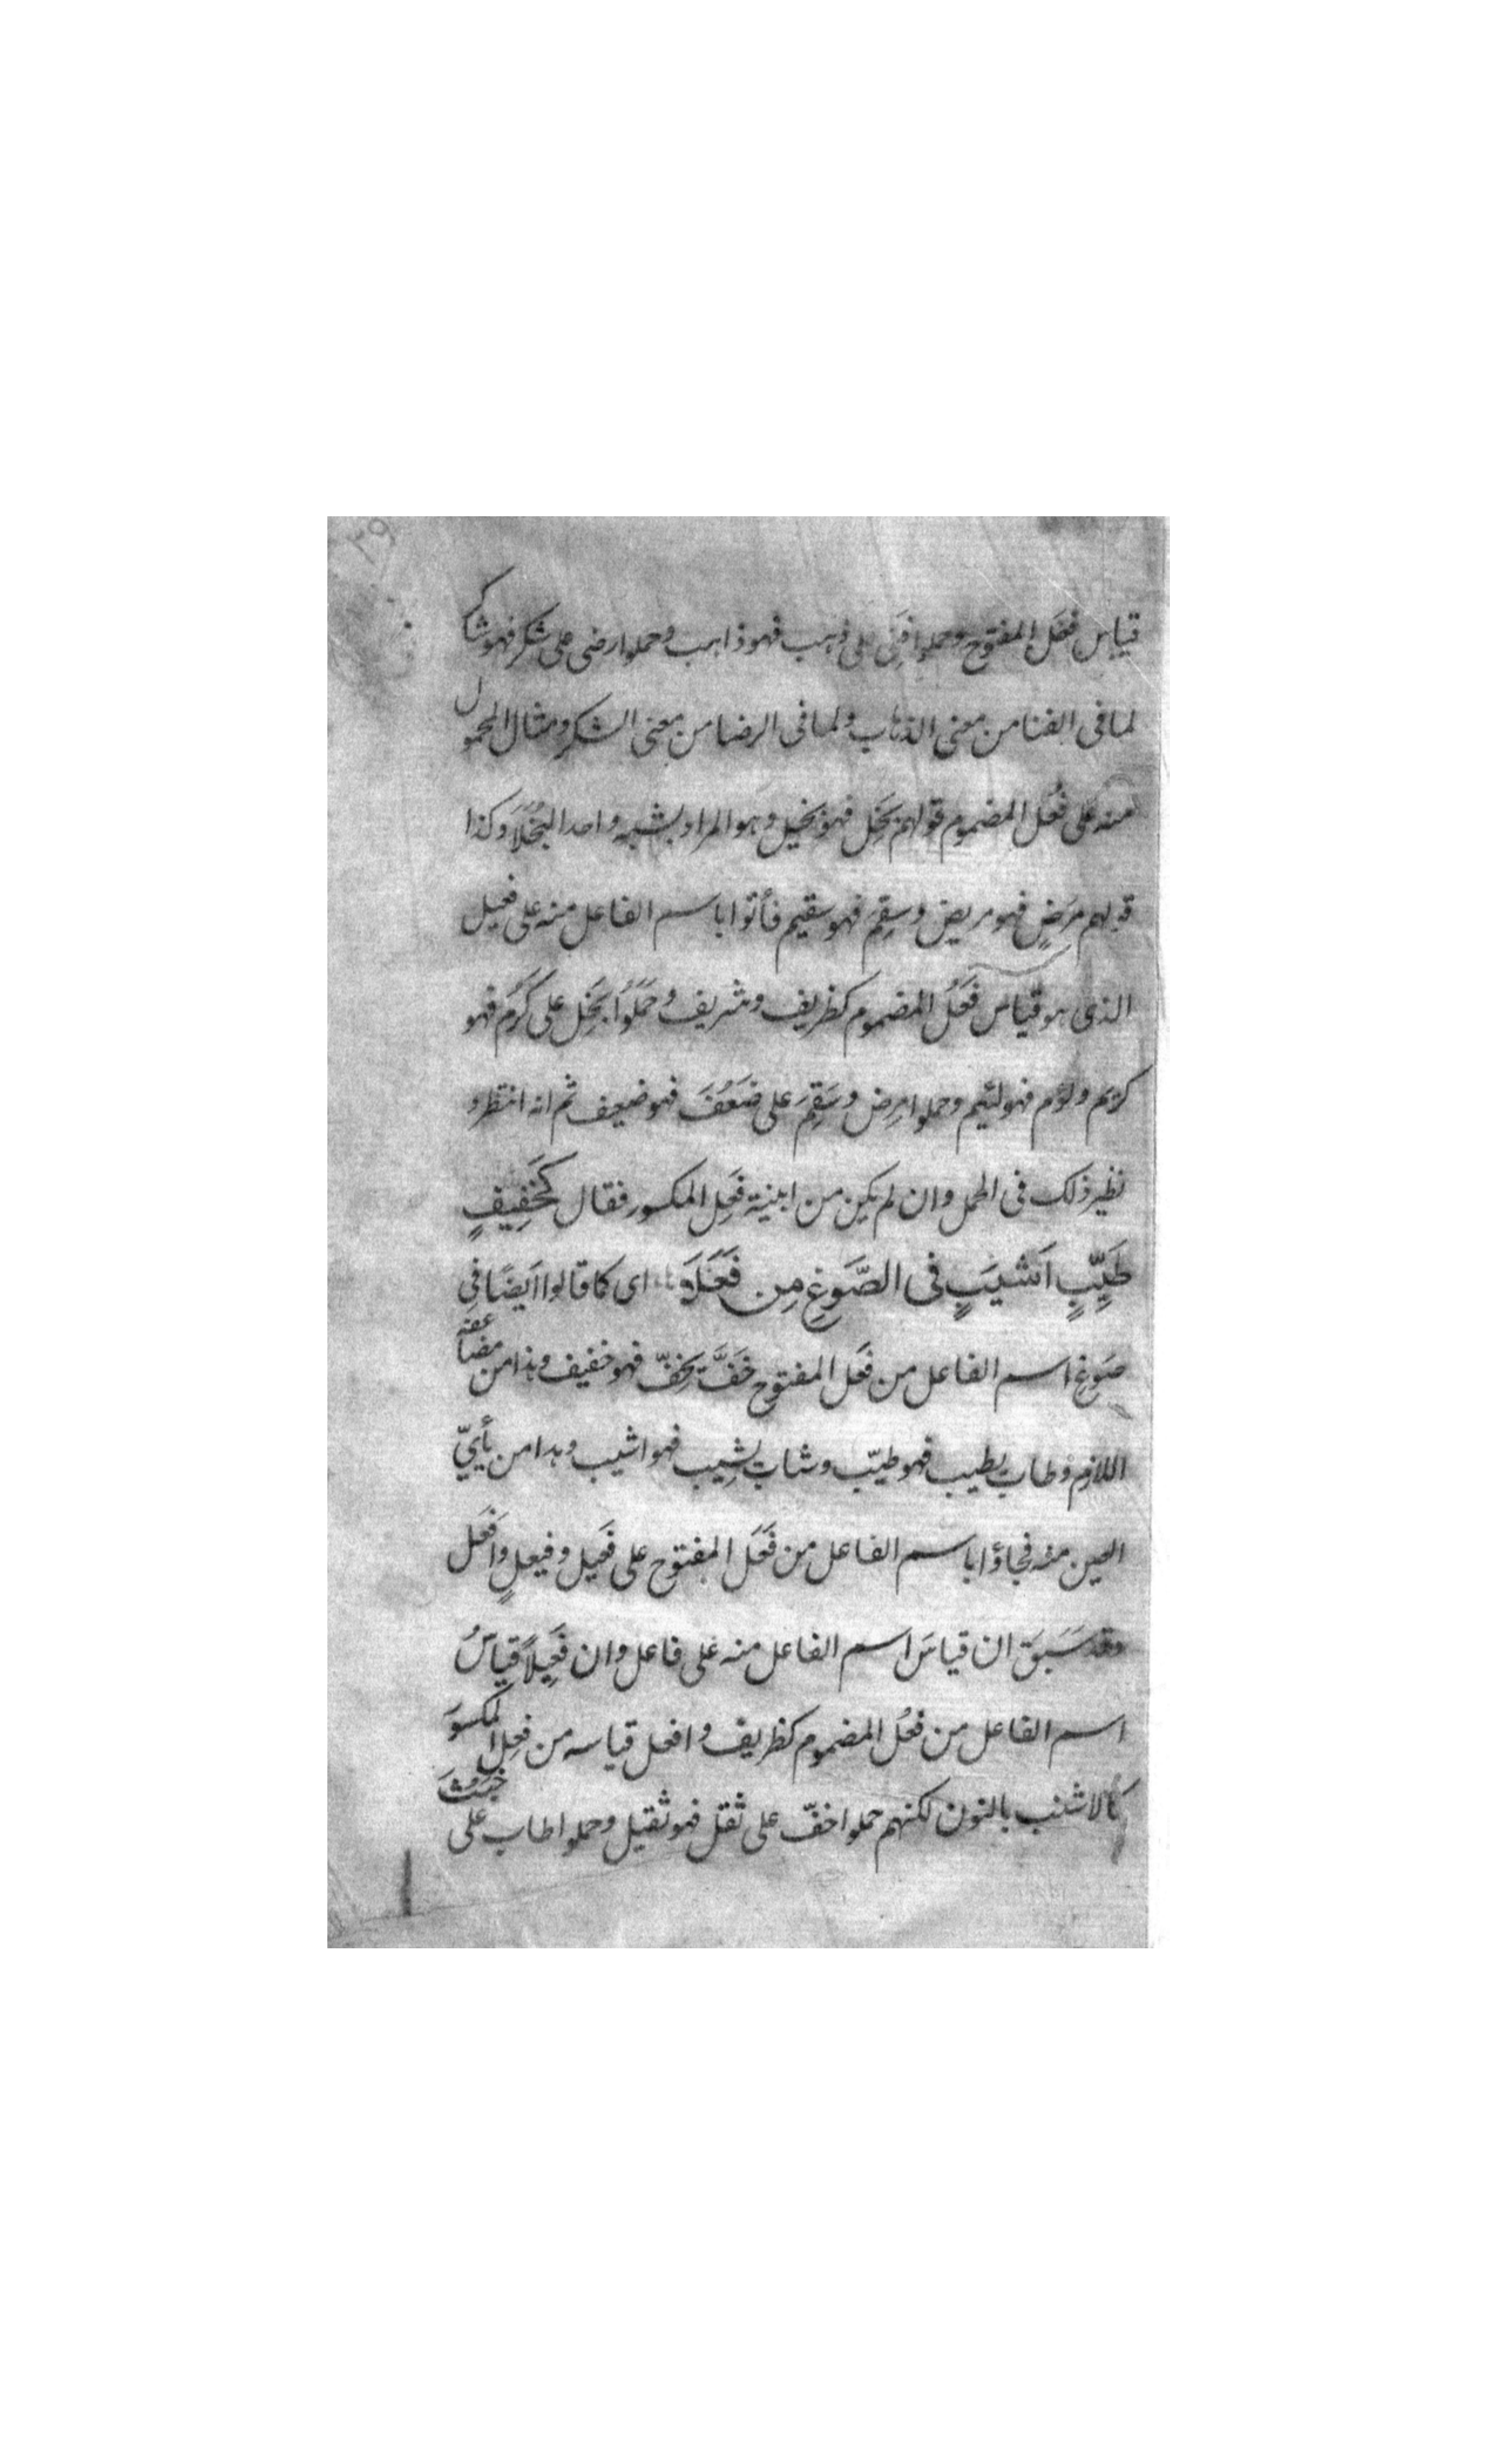 ٣٩
قياس فعَل المفتوح وحملوا فنِى على ذهب فهو ذاهب وحملوا رضى على شكر فهو شاكر
لما فى الفنا من معنى الذهاب ولما فى الرضا من معنى الشكر ومثال المحمول
منه على فعُل المضموم قولهم بَخِل فهو بخيل وهو المراد بشبه واحد البُخَلَاَ وكذا
قولهم مرَضٍ فهو مريض وسقِمَ فهو سقيم فأتوا باسم الفاعل منه على فعيل
الذى هو قياس فَعُلَ المضموم كظريف وشريف وحَمَلُوا بَخِل على كرُم فهو
كريم ولؤم فهو لئيم وحملوا مرِض وسَقِمَ على ضَعُفَ فهو ضعيف ثم انه انتظر و
نظير ذلك فى الحمل وان لم يكن من ابنية فَعِل المكسور فقال كَخَفِيفٍ
طَيِّبٍ اَشيَبٍ فى الصَّوَغِ مِن فَعَلَا اى كما قالوا اَيضًا فِى
صَوغِ اسم الفاعل من فعَل المفتوح خَفَّ يخِفّ فهو خفيف وهذا من مضاعفه
اللازم وطاب يطيب فهو طيّب وشاب يشِيب فهو اشيب وهذا من يأىّ
العين منه فجاؤا باسم الفاعل من فَعَل المفتوح على فَعيل وفيعلٍ واَفعَل
وقد سَبَقَ ان قياسَ اسم الفاعل منه على فاعل وان فَعِيلاً قياسُ
اسم الفاعل من فعُل المضموم كظريف وافعل قياسه من فعِل المكسور
كالاشنب بالنون لكنهم حملوا خفّ على ثقل فهو ثقيل وحملوا طاب على خبُثَ